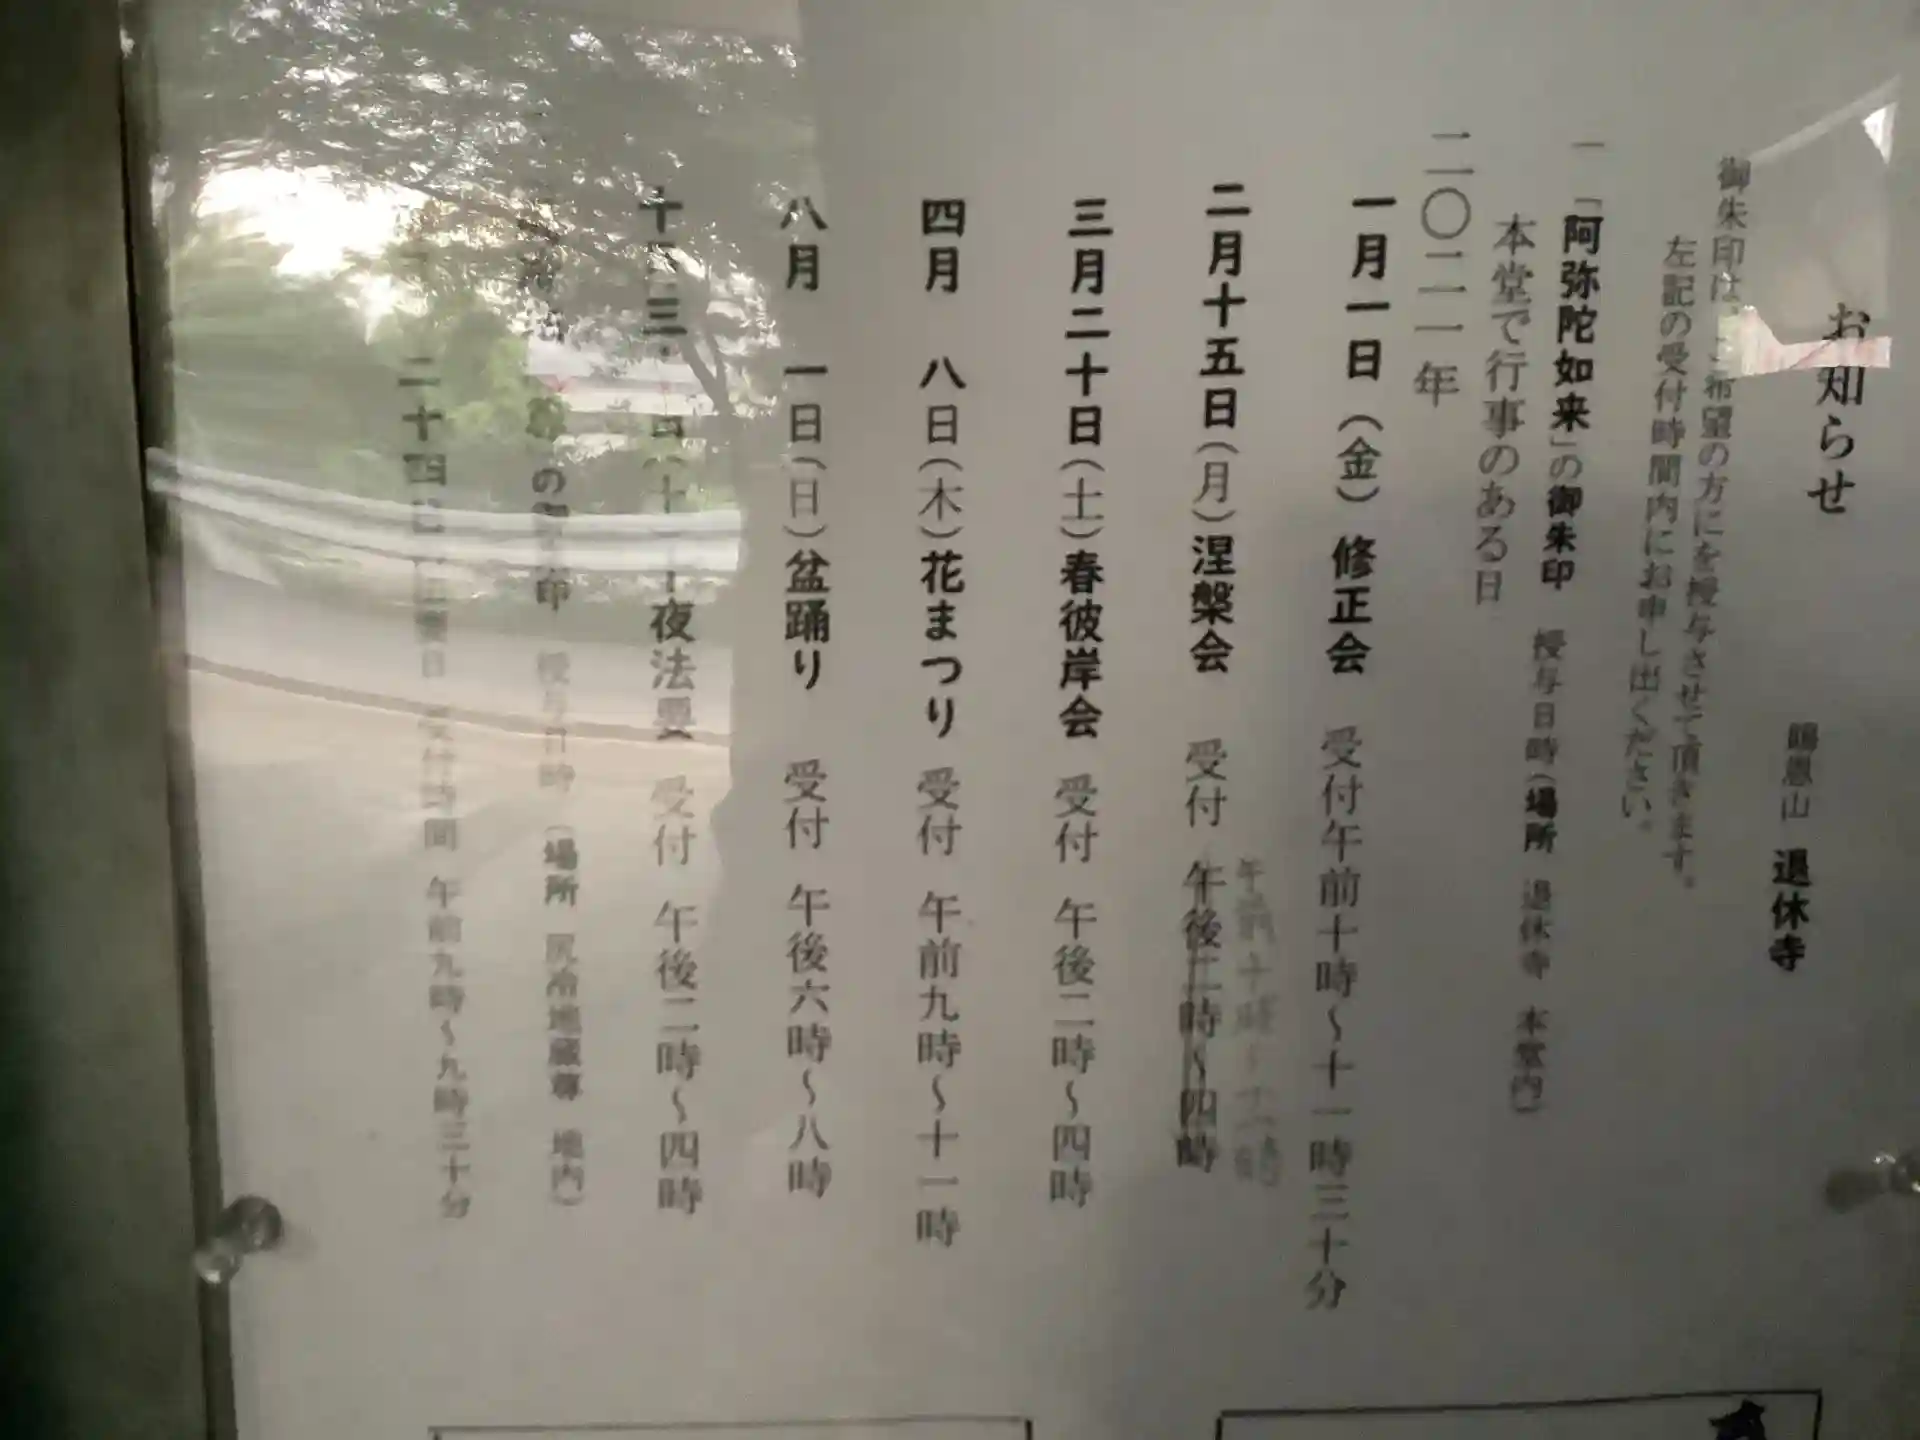 お知らせ
賜恩山 退休寺
御朱印は、ご希望の方にを授与させて頂きます。
左記の受付時間内にお申し出ください。
一「阿弥陀如来」の御朱印 授与日時(場所 退休寺 本堂内)
本堂で行事のある日
二〇二一年
一月一日(金)修正会 受付午前十時~十一時三十分
午前十時~十一時
二月十五日(月)涅槃会 受付 午後二時~四時
三月二十日(土)春彼岸会 受付 午後二時~四時
四月 八日(木)花まつり 受付 午前九時~十一時
八月 一日(日)盆踊り 受付 午後六時~八時
夜法要 受付 午後二時~四時
の御朱印 授与日時(場所 尻冷地蔵尊 地内)
二十四日 受付時間 午前九時~九時三十分